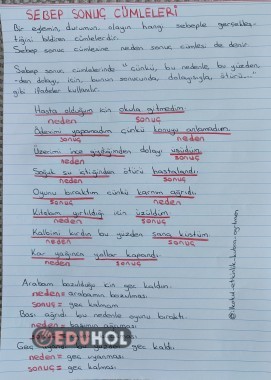 SEBEP SONUÇ CÜMLELERİ
Bir eylemin, durumun, olayın hangi sebeple gerçekleş-
tiğini bildiren cümlelerdir.
Sebep sonuç cümlesine neden sonuç cümlesi de denir.
Sebep sonuç cümlelerinde "çünkü, bu nedenle, bu yüzden
-den dolayı, için, bunun sonucunda, dolayısıyla, ötürü..."
gibi ifadeler kullanılır.
Hasta olduğum için okula gitmedim.
neden sonuç
Ödevimi yapamadım çünkü konuyu anlamadım.
sonuç neden
Üzerimi ince giydiğimden dolayı üşüdüm.
neden sonuç
Soğuk su içtiğinden ötürü hastalandı.
neden sonuç
Oyunu bıraktım çünkü karnım ağrıdı.
sonuç neden
Kitabım yırtıldığı için üzüldüm.
neden sonuç
Kalbimi kırdın bu yüzden sana küstüm.
neden sonuç
Kar yağınca yollar kapandı.
neden sonuç
Arabam bozulduğu için geç kaldım.
neden = arabamın bozulması
sonuç = geç kalmam
Başı ağrıdı bu nedenle oyunu bıraktı.
neden = başının ağrıması
EDUHOL
Geç geç kaldı.
neden = geç uyanması
sonuç = geç kalması